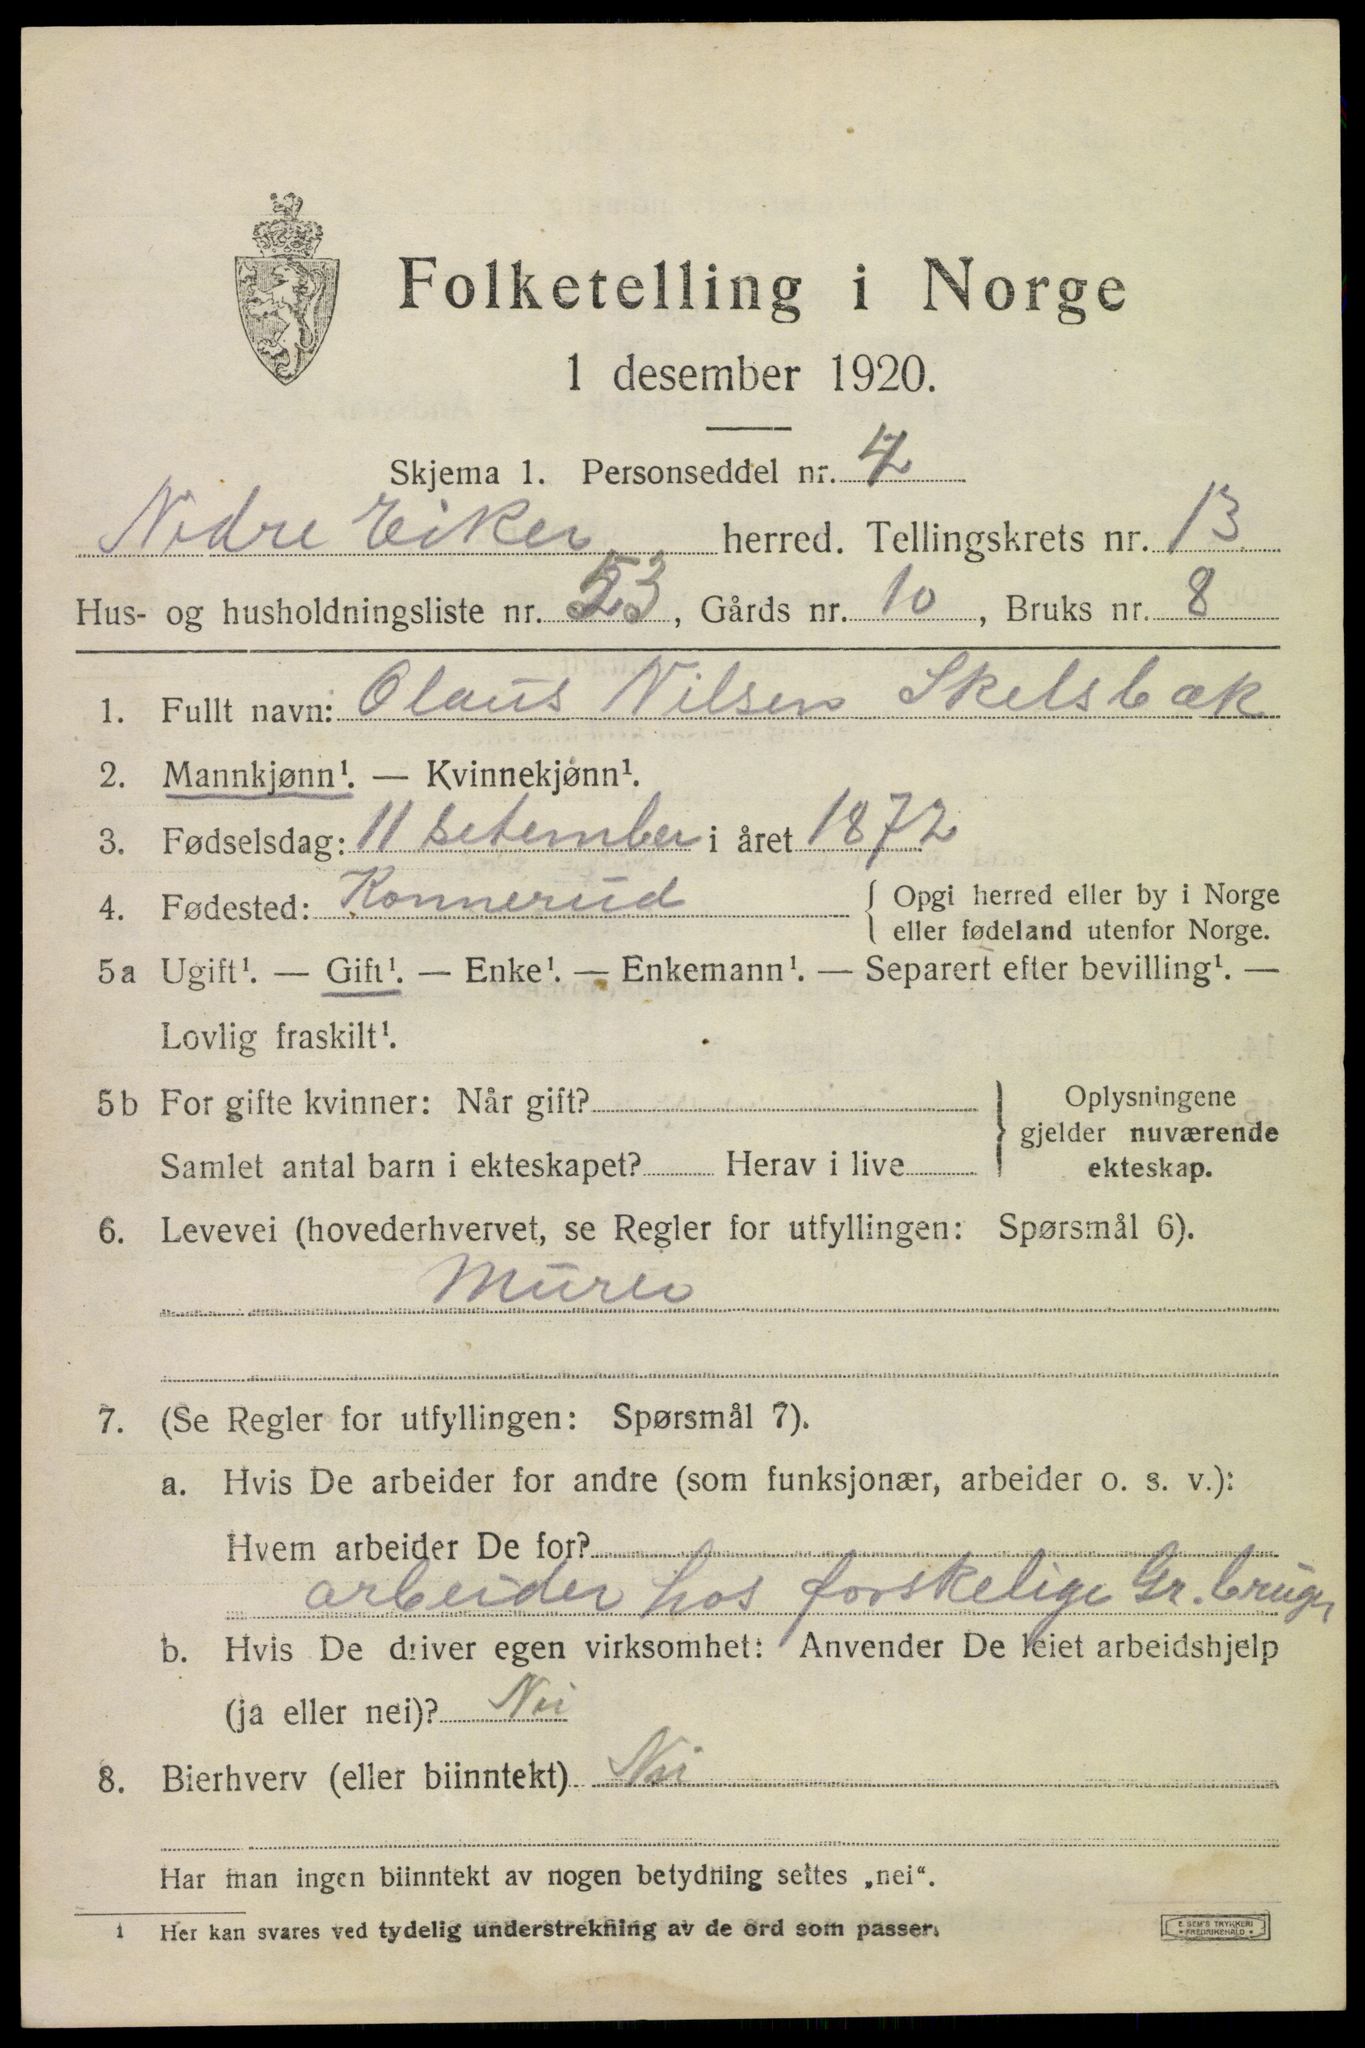 Folketelling i Norge
1 desember 1920.
Skjema 1. Personseddel nr.
Nedre Eiker herred. Tellingskrets nr. 13
Hus- og husholdningsliste nr. 53, Gårds nr. 10, Bruks nr. 8
1. Fullt navn: Olaus Nilsen Skelsbæk
2. Mannkjønn¹. — Kvinnekjønn¹.
3. Fødselsdag: 11 setember i året 1872
4. Fødested: Konnerud { Opgi herred eller by i Norge
eller fødeland utenfor Norge.
5a Ugift¹. — Gift¹. — Enke¹. — Enkemann¹. — Separert efter bevilling¹. —
Lovlig fraskilt¹.
5b For gifte kvinner: Når gift? } Oplysningene
gjelder nuværende
Samlet antal barn i ekteskapet? Herav i live ekteskap.
6. Levevei (hovederhvervet, se Regler for utfyllingen: Spørsmål 6).
Murer
7. (Se Regler for utfyllingen: Spørsmål 7).
a. Hvis De arbeider for andre (som funksjonær, arbeider o. s. v.):
Hvem arbeider De for?
arbeider hos forskelige Gr. brug
b. Hvis De driver egen virksomhet: Anvender De leiet arbeidshjelp
(ja eller nei)? Nei
8. Bierhverv (eller biinntekt) Nei
Har man ingen biinntekt av nogen betydning settes „nei“.
1 Her kan svares ved tydelig understrekning av de ord som passer.
E. SEM'S TRYKKERI
FREDRIKSHALD